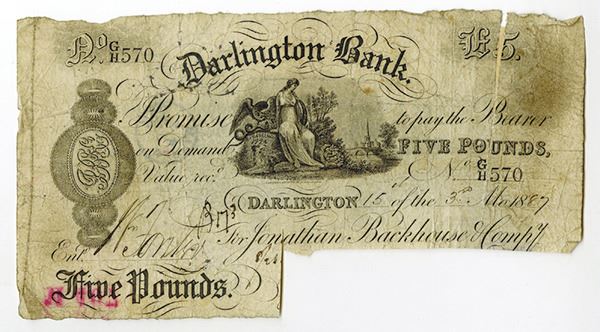 No G/H 570 Darlington Bank. £5.
I Promise to pay the Bearer
on Demand FIVE POUNDS,
Value recd. No G/H 570
DARLINGTON 15 of the 3rd Mo. 1887
Entd. For Jonathan Backhouse & Compy.
Five Pounds.